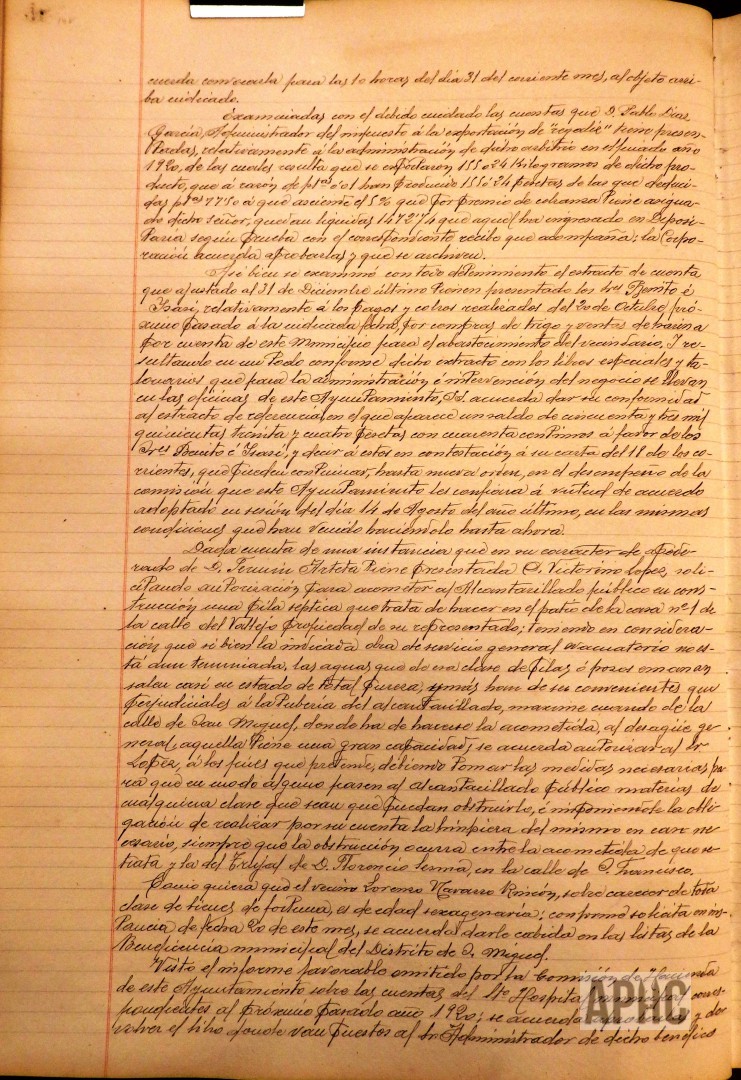 cuerda convocarla para las 10 horas del dia 31 del corriente mes, al objeto arri-
ba indicado.
Examinadas con el debido cuidado las cuentas que D. Pablo Diaz
Garcia Administrador del impuesto á la exportación de "regaliz" tiene presen-
tadas, relativamente á la administración de dicho arbitrio en el pasado año
1920, de las cuales resulta que se exportaron 155024 kilogramos de dicho pro-
ducto, que á razón de ptas 0'01 han producido 1550'24 pesetas de las que deduci-
das ptas 77'50 á que asciende el 5% que por premio de cobranza tiene asigna-
do dicho señor, quedan liquidas 1472'74 que aquel ha ingresado en Deposi-
taria segun prueba con el correspondiente recibo que acompaña; la Corpo-
ración acuerda aprobarlas y que se archiven.
Asi bien se examinó con todo detenimiento el extracto de cuenta
que ajustado al 31 de Diciembre último tienen presentado los Sres Benito é
Isasi, relativamente á los pagos y cobros realizados del 20 de Octubre pró-
ximo pasado á la indicada fecha por compras de trigo y ventas de harina
por cuenta de este Municipio para el abastecimiento del vecindario, Y re-
sultando en un todo conforme dicho extracto con los libros especiales y ta-
lonarios que para la administración é intervención del negocio se llevan
en las oficinas de este Ayuntamiento, Se acuerda dar su conformidad
al extracto de referencia, en el que aparece un saldo de cincuenta y tres mil
quinientas treinta y cuatro pesetas con cuarenta centimos á favor de los
Sres Benito é Isasi, y decir á estos en contestación á su carta del 18 de los co-
rrientes, que pueden continuar, hasta nueva orden, en el desempeño de la
comisión que este Ayuntamiento les confiara á virtud de acuerdo
adoptado en sesión del dia 14 de Agosto del año último, en las mismas
condiciones que han venido haciendolo hasta ahora.
Dada cuenta de una instancia que en su caracter de apode-
rado de D. Fermin Arteta tiene presentada D. Victorino Lopez, soli-
citando autorización para acometer al Alcantarillado público en cons-
trucción una pila séptica que trata de hacer en el patio de la casa nº 1 de
la calle del Vallejo propiedad de su representado; teniendo en considera-
ción que si bien la indicada obra de servicio general evacuatorio no es-
tá aun terminada, las aguas que de esa clase de pilas ó pozos emanan
salen casi en estado de total pureza y más han de ser convenientes que
perjudiciales á la tuberia del alcantarillado, maxime cuando de la
calle de San Miguel, donde ha de hacerse la acometida, al desagüe ge-
neral, aquella tiene una gran capacidad; se acuerda autorizar al Sr
Lopez, á los fines que pretende, debiendo tomar las medidas necesarias pa-
ra que en modo alguno pasen al alcantarillado público materias de
cualquiera clase que sean que puedan obstruirlo, é imponiendole la obli-
gación de realizar por su cuenta la limpieza del mismo en caso ne-
cesario, siempre que la obstrucción ocurra entre la acometida de que se
trata y la del de D. Florencio en la calle de S. Francisco.
Como quiera que el vecino Lorenzo Navarro Rincón, sobre carecer de toda
clase de bienes de fortuna, es de edad sexagenaria; conforme solicita en ins-
tancia de fecha 20 de este mes, se acuerda darle cabida en las listas de la
Beneficencia municipal del Distrito de S. Miguel.
Visto el informe favorable emitido por la Comisión de Hacienda
de este Ayuntamiento sobre las cuentas del Sto Hospital municipal corres-
pondientes al próximo pasado año 1920; se acuerda aprobarlas y de-
volver el libro donde van puestas al Sr. Administrador de dicho benéfico
APHC